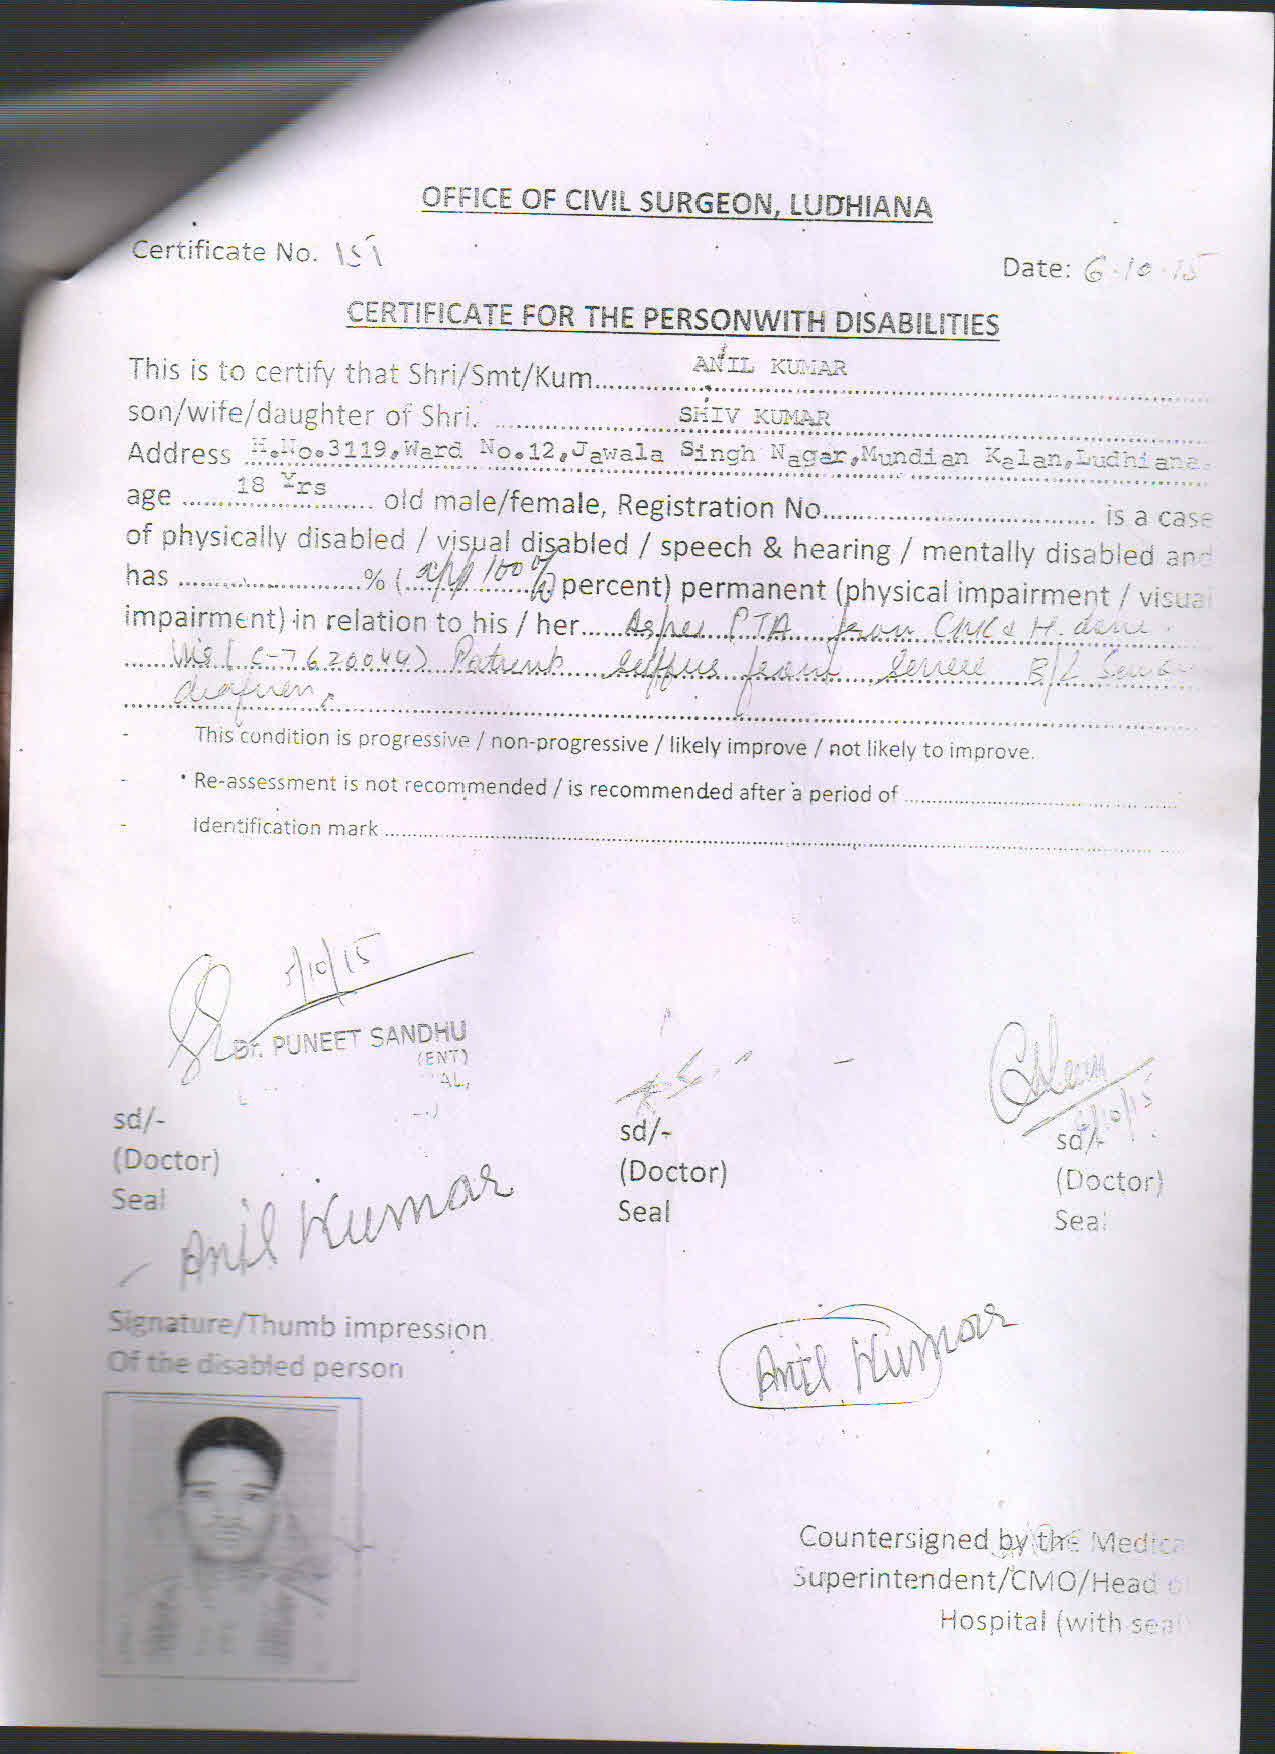 OFFICE OF CIVIL SURGEON, LUDHIANA
Certificate No. 151
Date: 6.10.15
CERTIFICATE FOR THE PERSONWITH DISABILITIES
This is to certify that Shri/Smt/Kum. ANIL KUMAR
son/wife/daughter of Shri. SHIV KUMAR
Address H.No.3119,Ward No.12,Jawala Singh Nagar,Mundian Kalan,Ludhiana.
age 18 Yrs old male/female, Registration No. is a case
of physically disabled / visual disabled / speech & hearing / mentally disabled and
has % ( 100% percent) permanent (physical impairment / visual
impairment) in relation to his / her As per PTA from CMC & H. done
(C-7620044) Patient suffers from severe B/L
- This condition is progressive / non-progressive / likely improve / not likely to improve.
- Re-assessment is not recommended / is recommended after a period of
- Identification mark
5/10/15
Dr. PUNEET SANDHU
(ENT)
sd/- sd/- sd/-
(Doctor) (Doctor) (Doctor)
Seal Seal Seal
Anil Kumar
Signature/Thumb impression
Of the disabled person
Anil Kumar
Countersigned by the Medical
Superintendent/CMO/Head of
Hospital (with seal